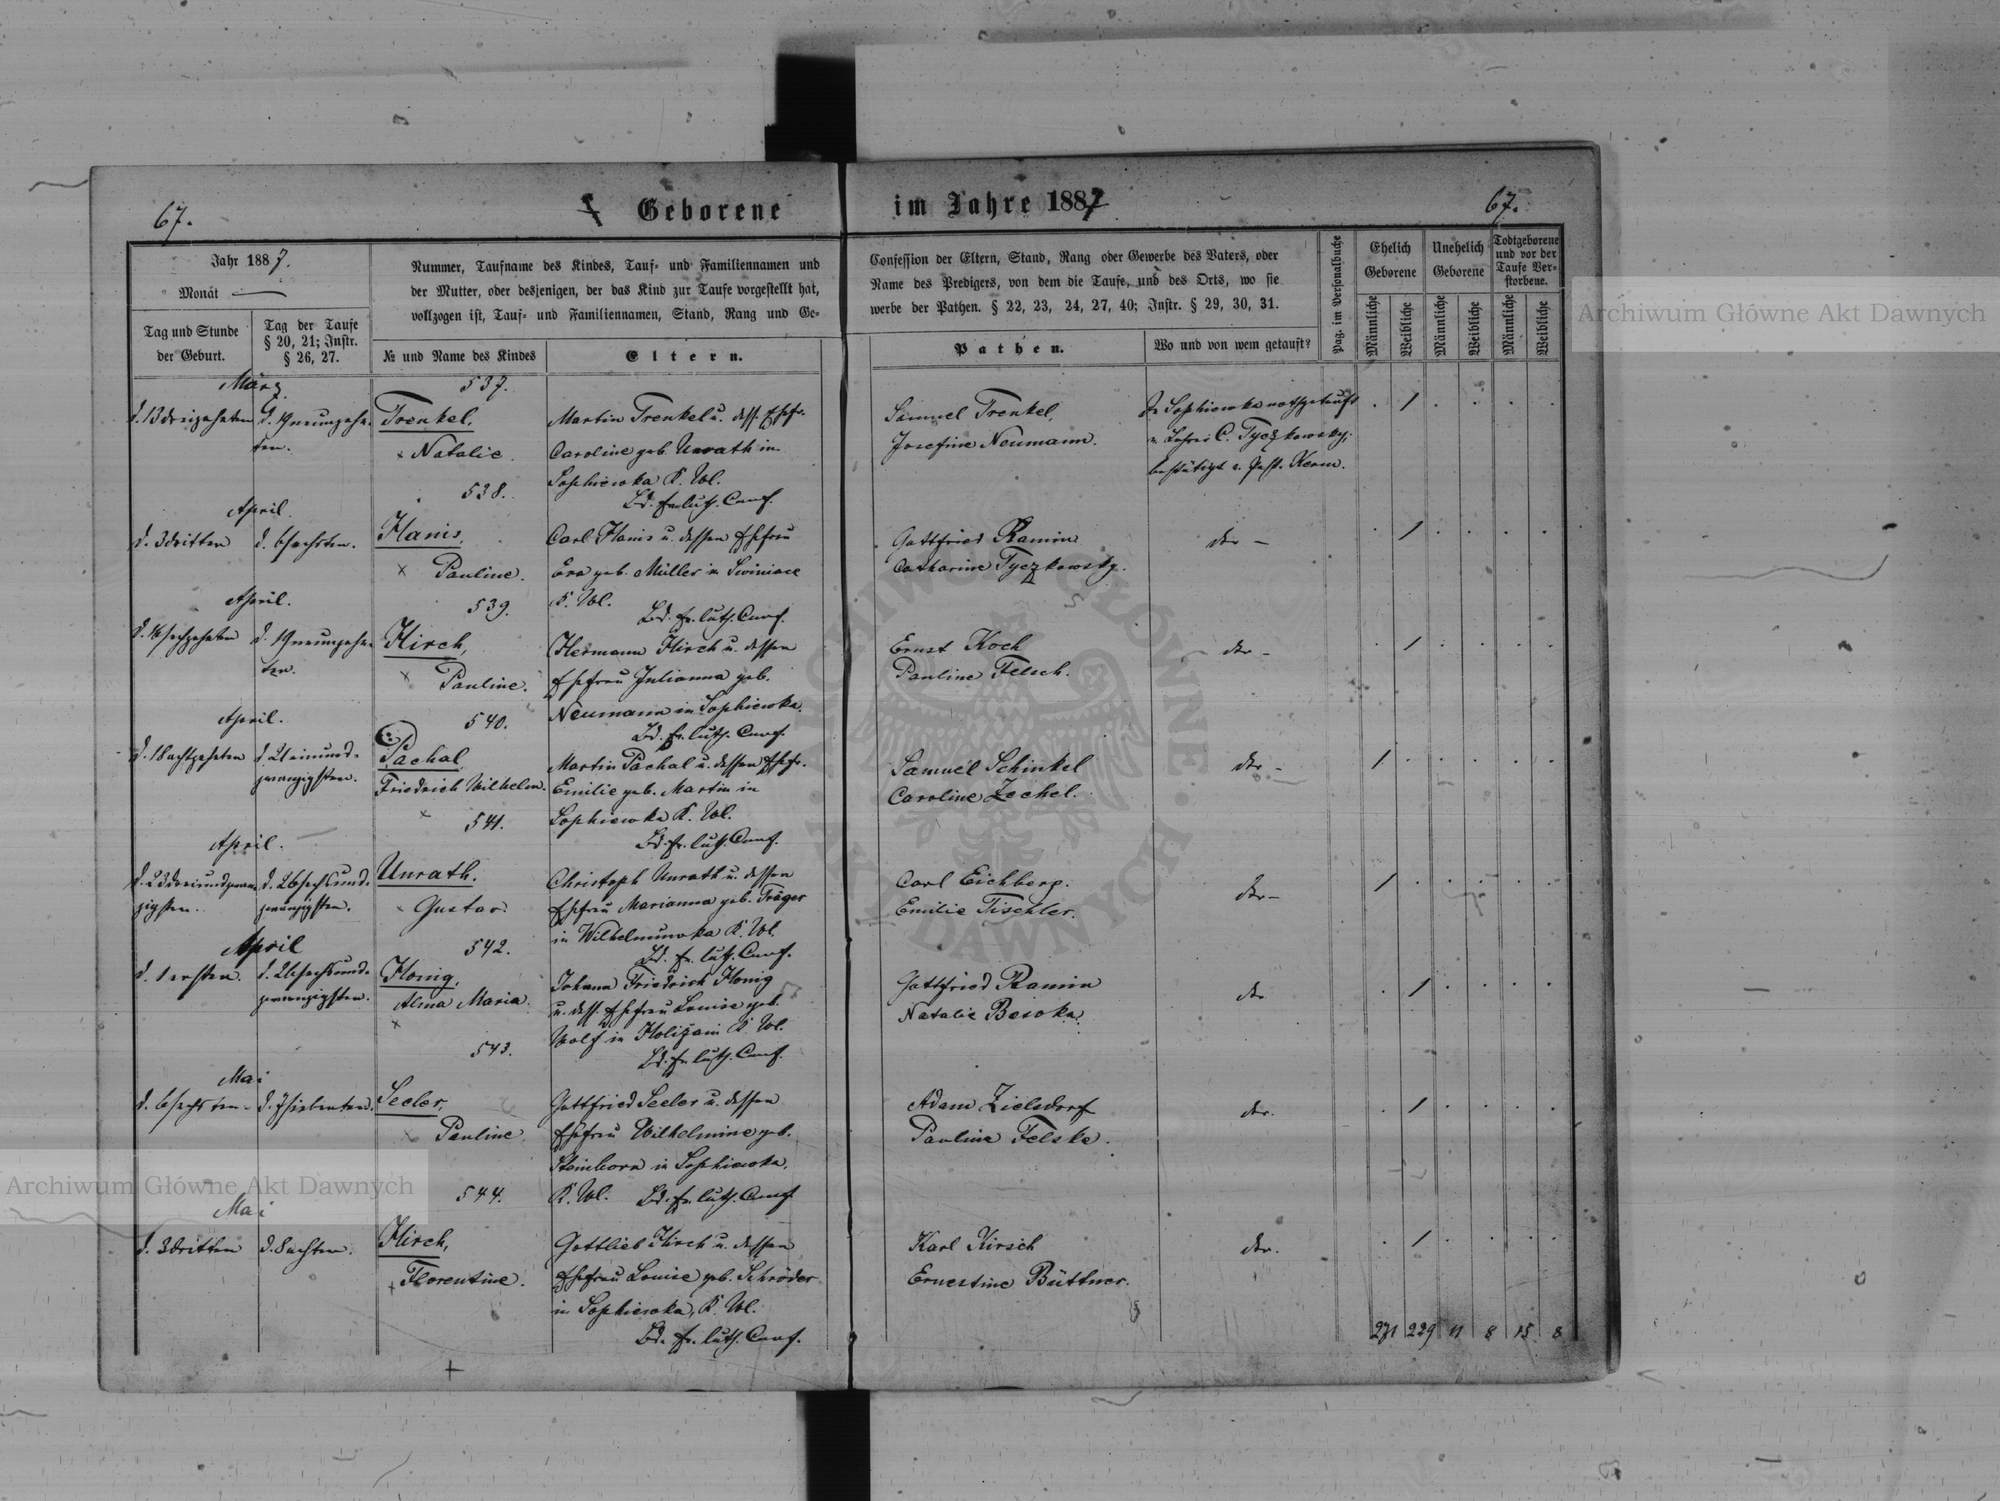 67.
Geborene
im Jahre 1887
67.
Jahr 1887.
Monat
Tag und Stunde
der Geburt.
Tag der Taufe
§ 20, 21; Instr.
§ 26, 27.
Nummer, Taufname des Kindes, Tauf- und Familiennamen und
der Mutter, oder desjenigen, der das Kind zur Taufe vorgestellt hat,
vollzogen ist, Tauf- und Familiennamen, Stand, Rang und Ge-
№ und Name des Kindes
Eltern.
Confession der Eltern, Stand, Rang oder Gewerbe des Vaters, oder
Name des Predigers, von dem die Taufe, und des Orts, wo sie
werbe der Pathen. § 22, 23, 24, 27, 40; Instr. § 29, 30, 31.
Pathen.
Wo und von wem getauft?
Pag. im Personalbuche
Ehelich
Geborene
Unehelich
Geborene
Todtgeborene
und vor der
Taufe Ver-
storbene.
Männliche
Weibliche
Männliche
Weibliche
Männliche
Weibliche
März
537.
d. 13 dreizehnten
d. 19 neunzehn-
ten.
Trenkel,
Natalie.
Martin Trenkel u. dess. Ehefr.
Caroline geb. Unrath in
Sophiewka K. Wl.
Bd. ev. luth. Conf.
Samuel Trenkel,
Josefine Neumann.
In Sophiewka nothgetauft
v. Lehrer C. Tyczkowsky;
bestätigt v. Past. Kerm.
April.
538.
d. 3 dritten
d. 6 sechsten.
Hanis,
Pauline.
Carl Hanis u. dessen Ehefrau
Eva geb. Müller in Swiniace
K. Wl.
Bd. ev. luth. Conf.
Gottfried Ramin
Catharine Tyczkowsky.
dto –
April.
539.
d. 16 sechzehnten
d. 19 neunzehn-
ten.
Hirch,
Pauline.
Hermann Hirch u. dessen
Ehefrau Julianna geb.
Neumann in Sophiewka.
Bd. ev. luth. Conf.
Ernst Koch
Pauline Felsch.
dto –
April.
540.
d. 18 achtzehnten
d. 21 einund-
zwanzigsten.
Pachal,
Friedrich Wilhelm.
Martin Pachal u. dessen Ehefr.
Emilie geb. Martin in
Sophiewka K. Wl.
Bd. ev. luth. Conf.
Samuel Schinkel
Caroline Zechel.
dto –
April.
541.
d. 23 dreiundzwan-
zigsten.
d. 26 sechsund-
zwanzigsten.
Unrath.
Gustav.
Christoph Unrath u. dessen
Ehefrau Marianna geb. Träger
in Wilhelmuwka K. Wl.
Bd. ev. luth. Conf.
Carl Eichberg.
Emilie Tischler.
dto –
April
542.
d. 1 ersten.
d. 26 sechsund-
zwanzigsten.
Honig,
Alma Maria.
Johann Friedrich Honig
u. dess. Ehefrau Louise geb.
Wolf in K. Wl.
Bd. ev. luth. Conf.
Gottfried Ramin
Natalie Beroka.
dto
Mai
543.
d. 6 sechsten
d. 7 siebenten.
Seeler,
Pauline.
Gottfried Seeler u. dessen
Ehefrau Wilhelmine geb.
Steinborn in Sophiewka,
K. Wl. Bd. ev. luth. Conf.
Adam Zielsdorf
Pauline Felske.
dto.
Mai
544.
d. 3 dritten
d. 8 achten.
Hirch,
Florentine.
Gottlieb Hirch u. dessen
Ehefrau Louise geb. Schröder
in Sophiewka, K. Wl.
Bd. ev. luth. Conf.
Karl Kirsch
Ernestine Büttner.
dto.
271 229 11 8 15 8
Archiwum Główne Akt Dawnych
Archiwum Główne Akt Dawnych
ARCHIWUM GŁÓWNE AKT DAWNYCH